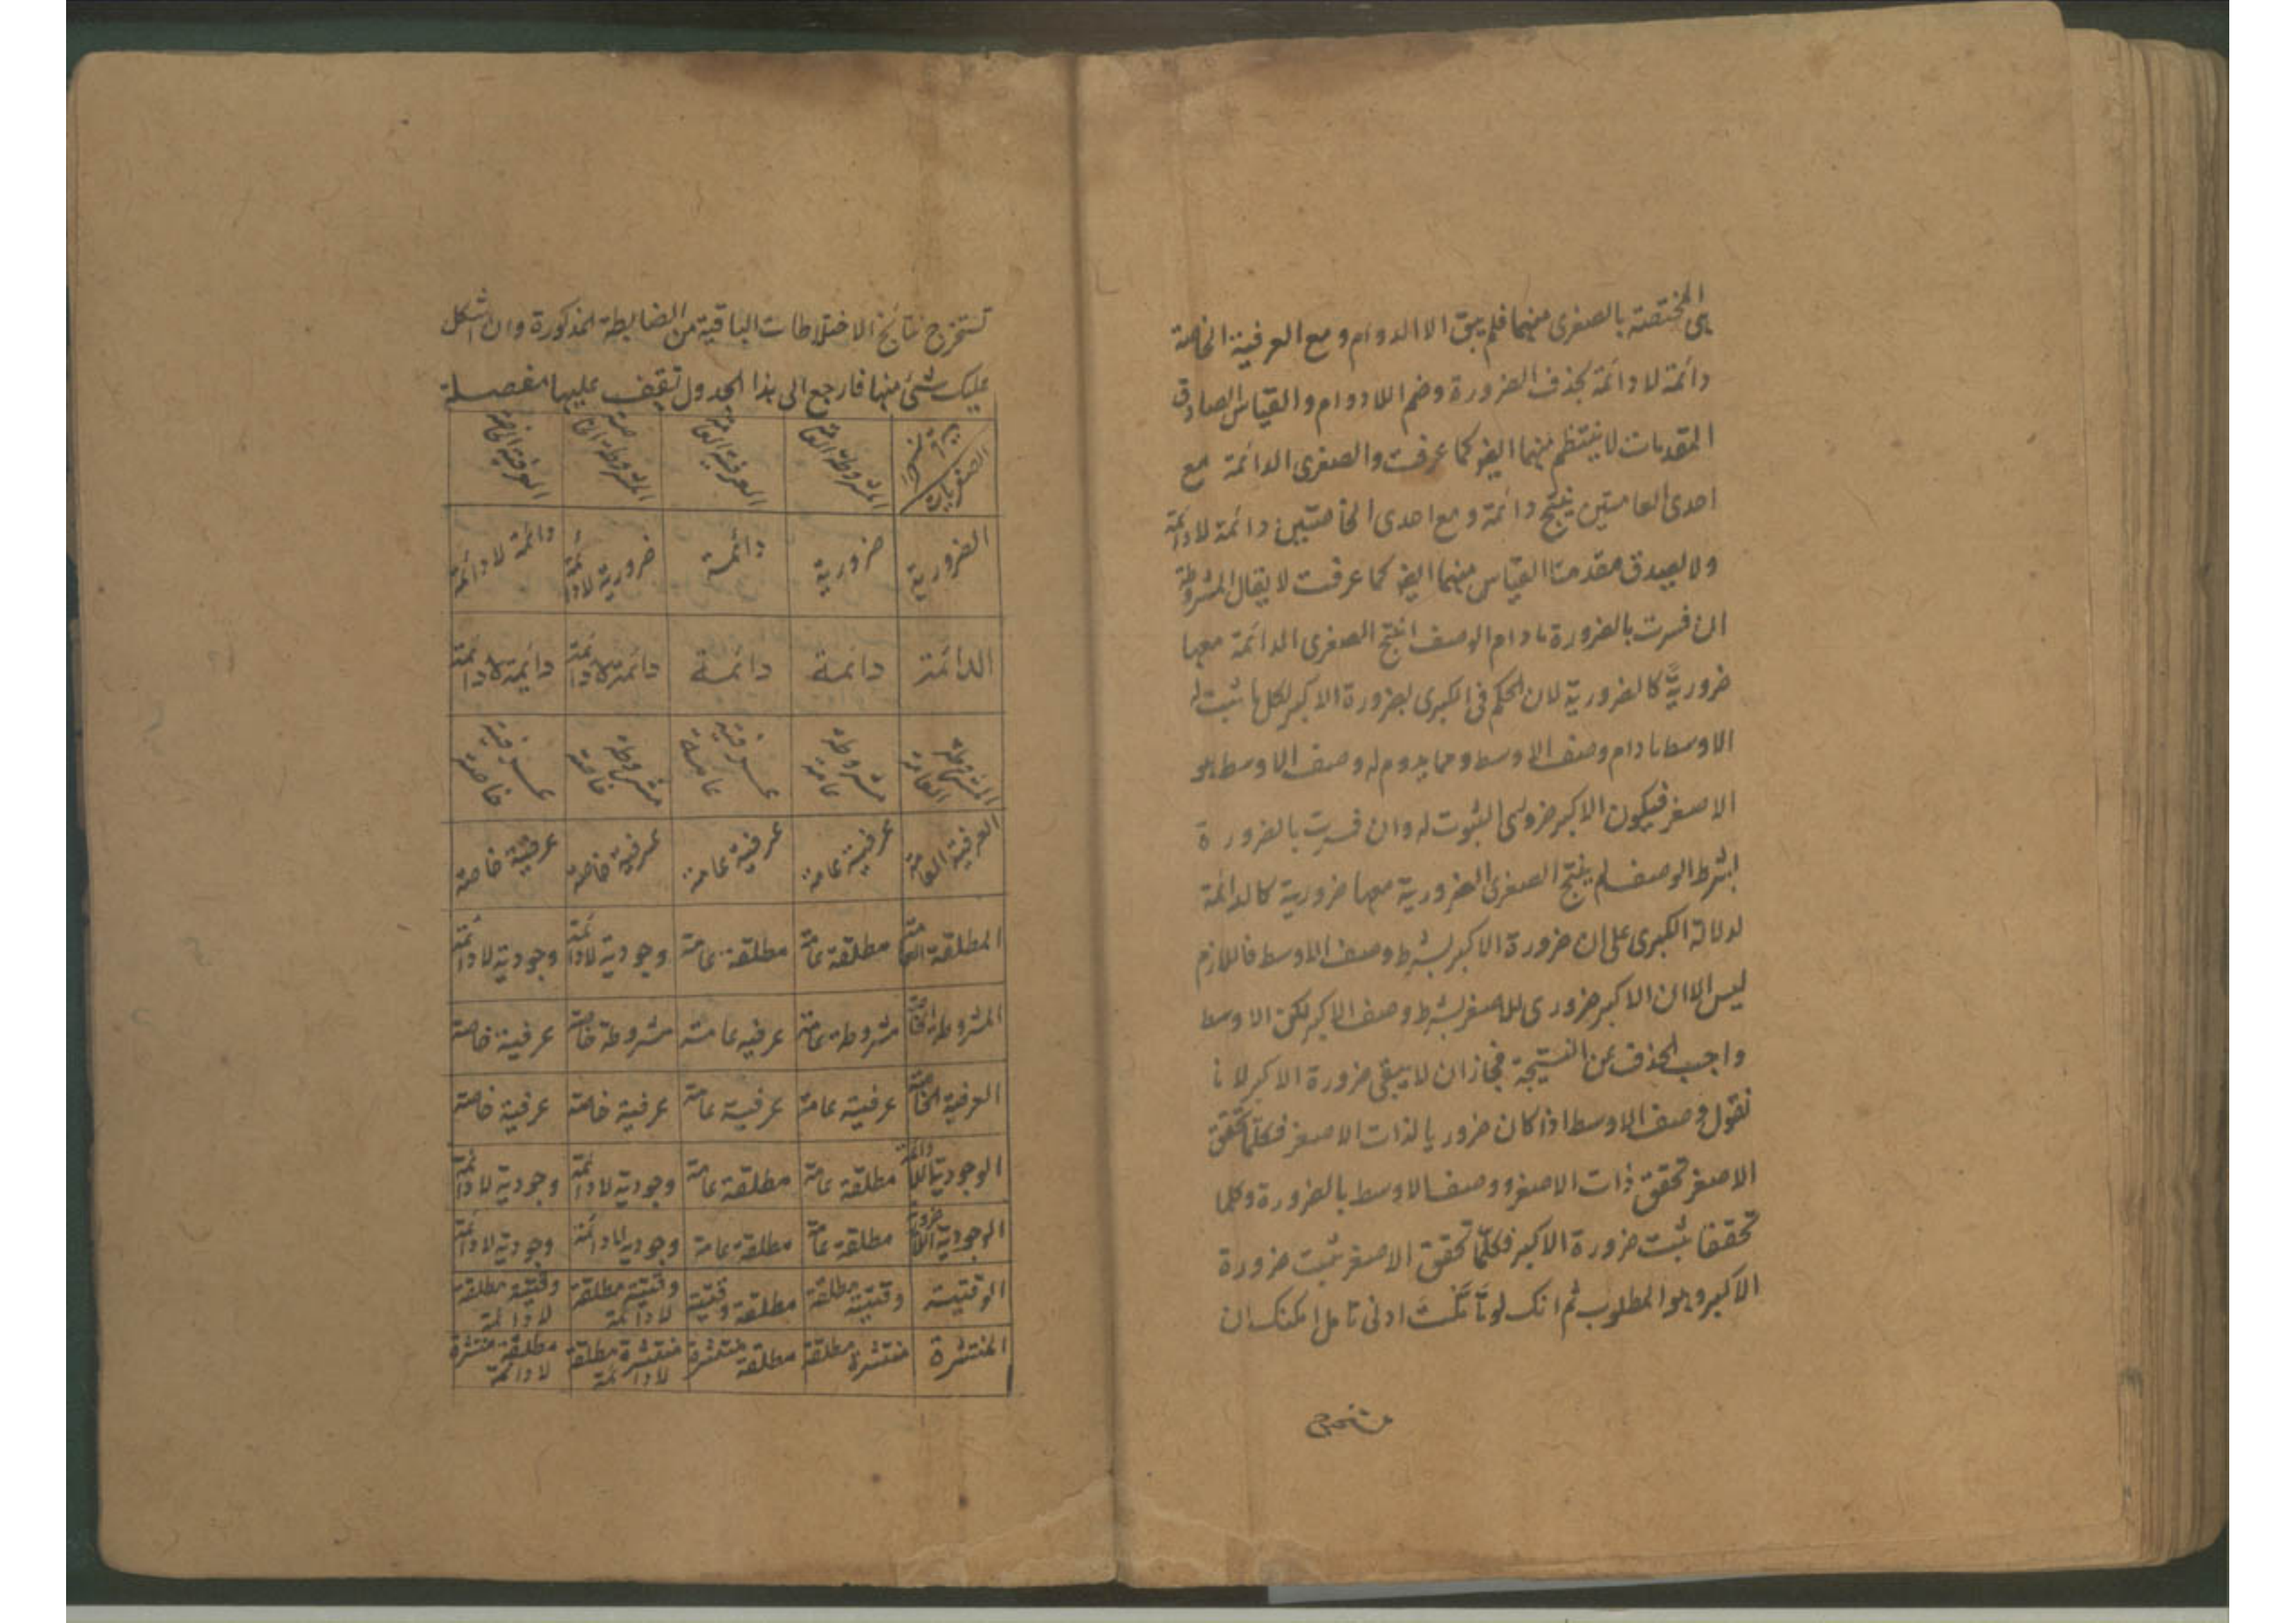 هى المختصة بالصغرى منهما فلم يبق الا الدوام ومع العرفية الخاصة
دائمة لا دائمة بحذف الضرورة وضم اللادوام والقياس الصادق
المقدمات لا ينتظم منهما ايضو كما عرفت والصغرى الدائمة مع
احدى العامتين ينتج دائمة ومع احدى الخاصتين دائمة لا دائمة
ولا يصدق مقدمتا القياس منهما ايضو كما عرفت لا يقال المشروطة
ان فسرت بالضرورة ما دام الوصف انتج الصغرى الدائمة معها
ضروريةً كالضرورية لان الحكم فى الكبرى بضرورة الاكبر لكل ما ثبت له
الاوسط ما دام وصف الاوسط ومما يدوم له وصف الاوسط هو
الاصغر فيكون الاكبر ضرورى الثبوت له وان فسرت بالضرورة
بشرط الوصف لم ينتج الصغرى الضرورية معها ضرورية كالدائمة
لدلالة الكبرى على ان ضرورة الاكبر بشرط وصف الاوسط فاللازم
ليس الا ان الاكبر ضرورى للاصغر بشرط وصف الاكبر لكن الاوسط
واجب الحذف عن النتيجة فجاز ان لا يبقى ضرورة الاكبر لانا
نقول وصف الاوسط اذا كان ضروريا لذات الاصغر فكلّما تحقق
الاصغر تحقق ذات الاصغر ووصف الاوسط بالضرورة وكلما
تحققا ثبت ضرورة الاكبر فكلّما تحقق الاصغر ثبت ضرورة
الاكبر وهو المطلوب ثم انك لو تأملت ادنى تامل امكنك ان
تستخرج
تستخرج نتائج الاختلاطات الباقية من الضابطة المذكورة وان اشكل
عليك شئ منها فارجع الى هذا الجدول تقف عليها مفصلة
الصغريات المشروطة العامة العرفية العامة المشروطة الخاصة العرفية الخاصة
الضرورية ضرورية دائمة ضرورية لا دائمة دائمة لا دائمة
الدائمة دائمة دائمة دائمة لا دائمة دايمة لا دائمة
المشروطة العامة مشروطة عامة عرفية عامة مشروطة خاصة عرفية خاصة
العرفية العامة عرفية عامة عرفية عامة عرفية خاصة عرفية خاصة
المطلقة العامة مطلقة عامة مطلقة عامة وجودية لا دائمة وجودية لا دائمة
المشروطة الخاصة مشروطة عامة عرفية عامة مشروطة خاصة عرفية خاصة
العرفية الخاصة عرفية عامة عرفية عامة عرفية خاصة عرفية خاصة
الوجودية اللا دائمة مطلقة عامة مطلقة عامة وجودية لا دائمة وجودية لا دائمة
الوجودية اللا ضرورية مطلقة عامة مطلقة عامة وجودية لا دائمة وجودية لا دائمة
الوقتية وقتية مطلقة مطلقة وقتية وقتية مطلقة لا دائمة وقتية مطلقة لا دائمة
المنتشرة منتشرة مطلقة مطلقة منتشرة منتشرة مطلقة لا دائمة مطلقة منتشرة لا دائمة